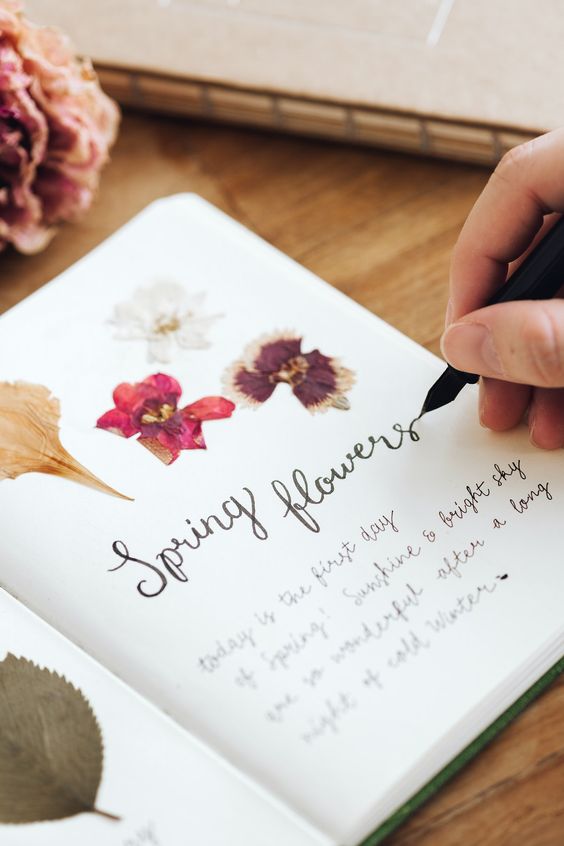 Spring flowers
today is the first day
of Spring! Sunshine & bright sky
are so wonderful after a long
night of cold Winter.